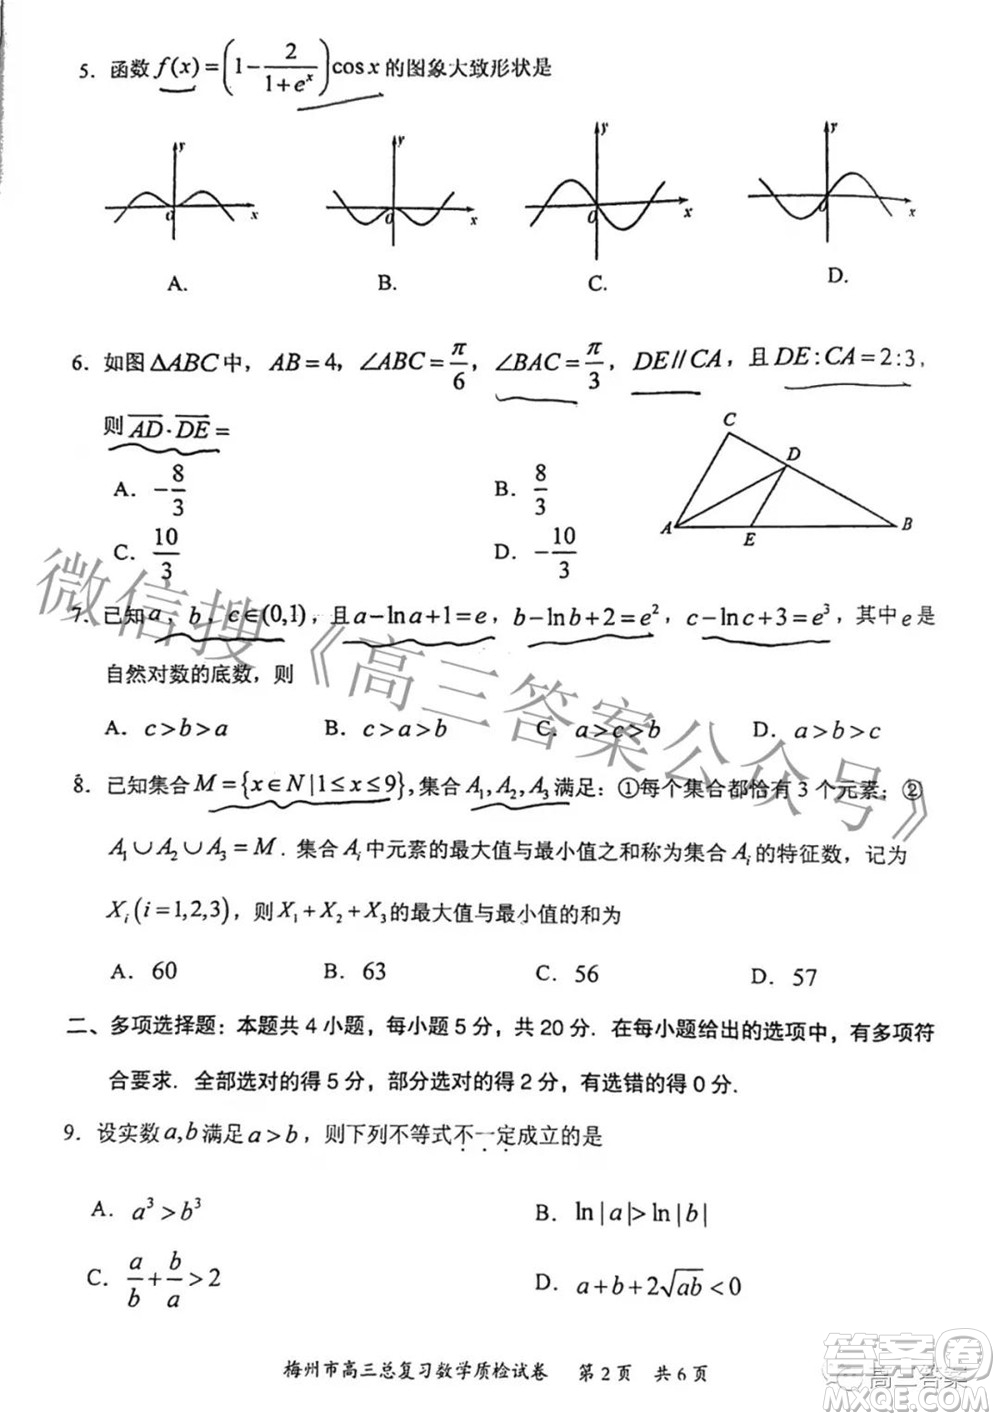 5. 函数 f(x) = (1 - 2/(1+e^x)) cos x 的图象大致形状是
y y y y
O x O x O x O x
A. B. C. D.
6. 如图 ΔABC 中, AB = 4, ∠ABC = π/6, ∠BAC = π/3, DE // CA, 且 DE:CA = 2:3,
则 AD · DE =
A. -8/3 B. 8/3
C. 10/3 D. -10/3
C D A E B
7. 已知 a, b, c∈(0,1), 且 a-ln a+1=e, b-ln b+2=e², c-ln c+3=e³, 其中 e 是
自然对数的底数, 则
A. c>b>a B. c>a>b C. a>c>b D. a>b>c
8. 已知集合 M={x∈N|1≤x≤9}, 集合 A₁, A₂, A₃ 满足: ①每个集合都恰有 3 个元素; ②
A₁∪A₂∪A₃=M. 集合 Aᵢ 中元素的最大值与最小值之和称为集合 Aᵢ 的特征数, 记为
Xᵢ(i=1,2,3), 则 X₁+X₂+X₃ 的最大值与最小值的和为
A. 60 B. 63 C. 56 D. 57
二、多项选择题: 本题共 4 小题, 每小题 5 分, 共 20 分. 在每小题给出的选项中, 有多项符
合要求. 全部选对的得 5 分, 部分选对的得 2 分, 有选错的得 0 分.
9. 设实数 a,b 满足 a>b, 则下列不等式不一定成立的是
A. a³>b³ B. ln|a|>ln|b|
C. a/b + b/a > 2 D. a+b+2√ab<0
梅州市高三总复习数学质检试卷 第 2 页 共 6 页
微信搜《高三答案公众号》
答案圈
高三答案